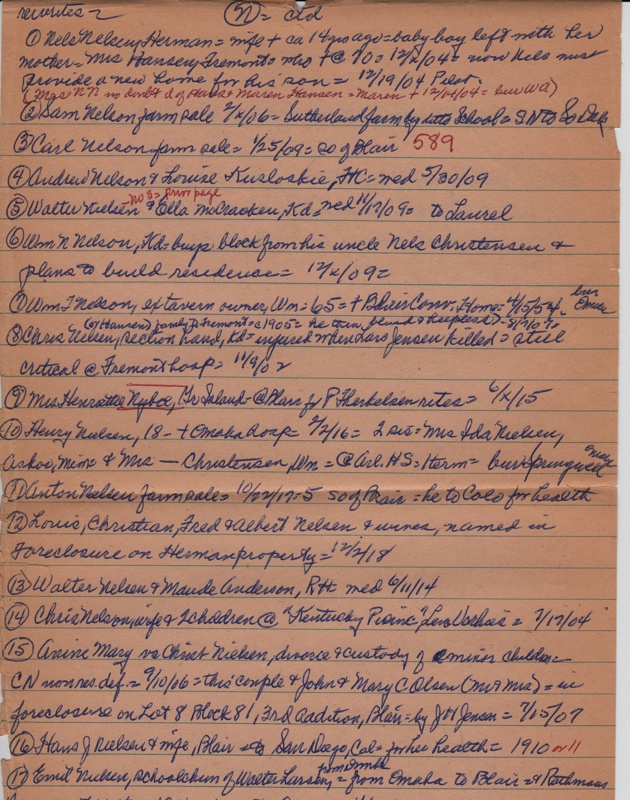 rewrites - (N) = ctd
① Nels Nelsen, Herman = wife + ca 14 yrs ago = baby boy left with her
mother = Mrs Hansen, Fremont = mrs + @ 70 = 12/x/04 = now Nels must
provide a new home for his son = 12/19/04 Pilot.
(Mrs NN no doubt d of Hans & Maren Hansen = Maren + 12/ /04 = bur Wa)
② Sam Nelson farm sale 2/x/06 = Sutherland farm by School = SN to So Dak
③ Carl Nelson farm sale = 1/25/09 = so of Blair 589
④ Andrew Nelson & Louise Kusloskie, HC = med 5/30/09
- no 8 = prior page
⑤ Walter Nielsen & Ella McCracken, Kd = med 11/17/09 = to Laurel
⑥ Wm N Nelson, Kd = buys block from his uncle Nels Christensen &
plans to build residense = 12/x/09 =
⑦ Wm T Nelson, ex tavern owner, Wn = 65 = + Blair Conv. Home = 4/15/54. bur
(or Hansen) family to Fremont = c 1905 = he then blind &
⑧ Chris Nelsen, section hand, Kd = injured when Lars Jensen killed = still
critical @ Fremont hosp = 11/9/02
⑨ Mrs Henrattee Nyboe, Gr Island = @ Blair for P Therkelsen rites = 6/x/15
⑩ Henry Nielsen, 18 - + Omaha hosp = 2/2/16 = 2 sis = Mrs Ida Nielsen,
Askov, Minn & Mrs — Christensen, Wn = @ Arl. HS = Herm = bur Spungwell
⑪ Anton Nielsen farm sale = 10/22/17 = 5 so of Blair = he to Colo for health
⑫ Louis, Christian, Fred & Albert Nelsen & wives, named in
foreclosure on Herman property = 12/2/18
⑬ Walter Nelsen & Maude Anderson, RH med 6/11/14
⑭ Chris Nelson, wife & 2 children @ "Kentucky Picinc", Lew = 7/17/04
⑮ Anine Mary vs Christ Nielsen, divorce & custody of minor children -
CN nonres. def. = 9/10/06 = this couple & John & Mary C Olsen (mr & mrs) = in
foreclosure on Lot 8 Block 81, 3rd addition, Blair = by JH Jensen = 7/15/07
⑯ Hans J Nielsen & wife, Blair = to San Diego, Cal = for her health = 1910 or 11
from Omaha
⑰ Emil Nielsen, schoolchum of Walter Larsen, = from Omaha to Blair = @ Rathmans